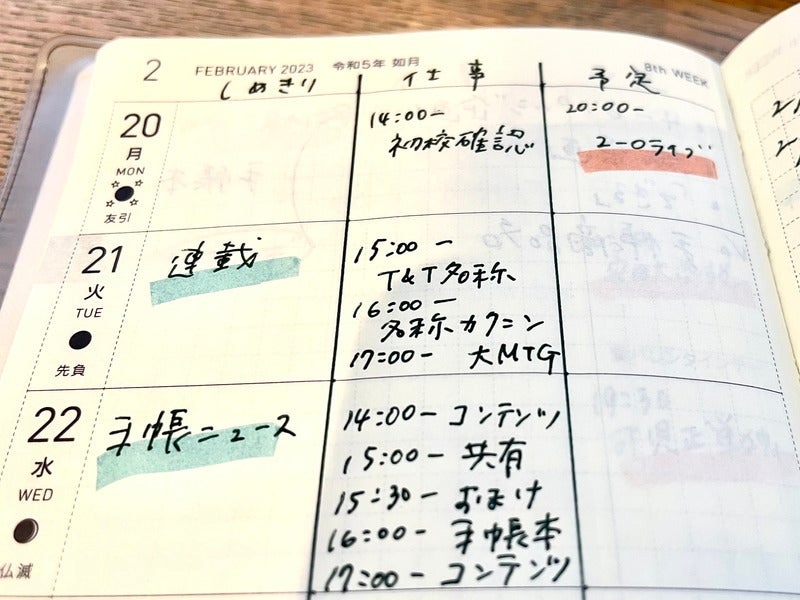 2 FEBRUARY 2023 令和5年 如月 8th WEEK
しめきり 仕事 予定
20
月
MON
友引
14:00−
初校確認
20:00−
ユーロライブ
21
火
TUE
先負
連載
15:00−
T&T名称
16:00−
名称カクニン
17:00− 大MTG
22
水
WED
仏滅
手帳ニュース
14:00− コンテンツ
15:00− 共有
15:30− おまけ
16:00− 手帳本
17:00− コンテンツ